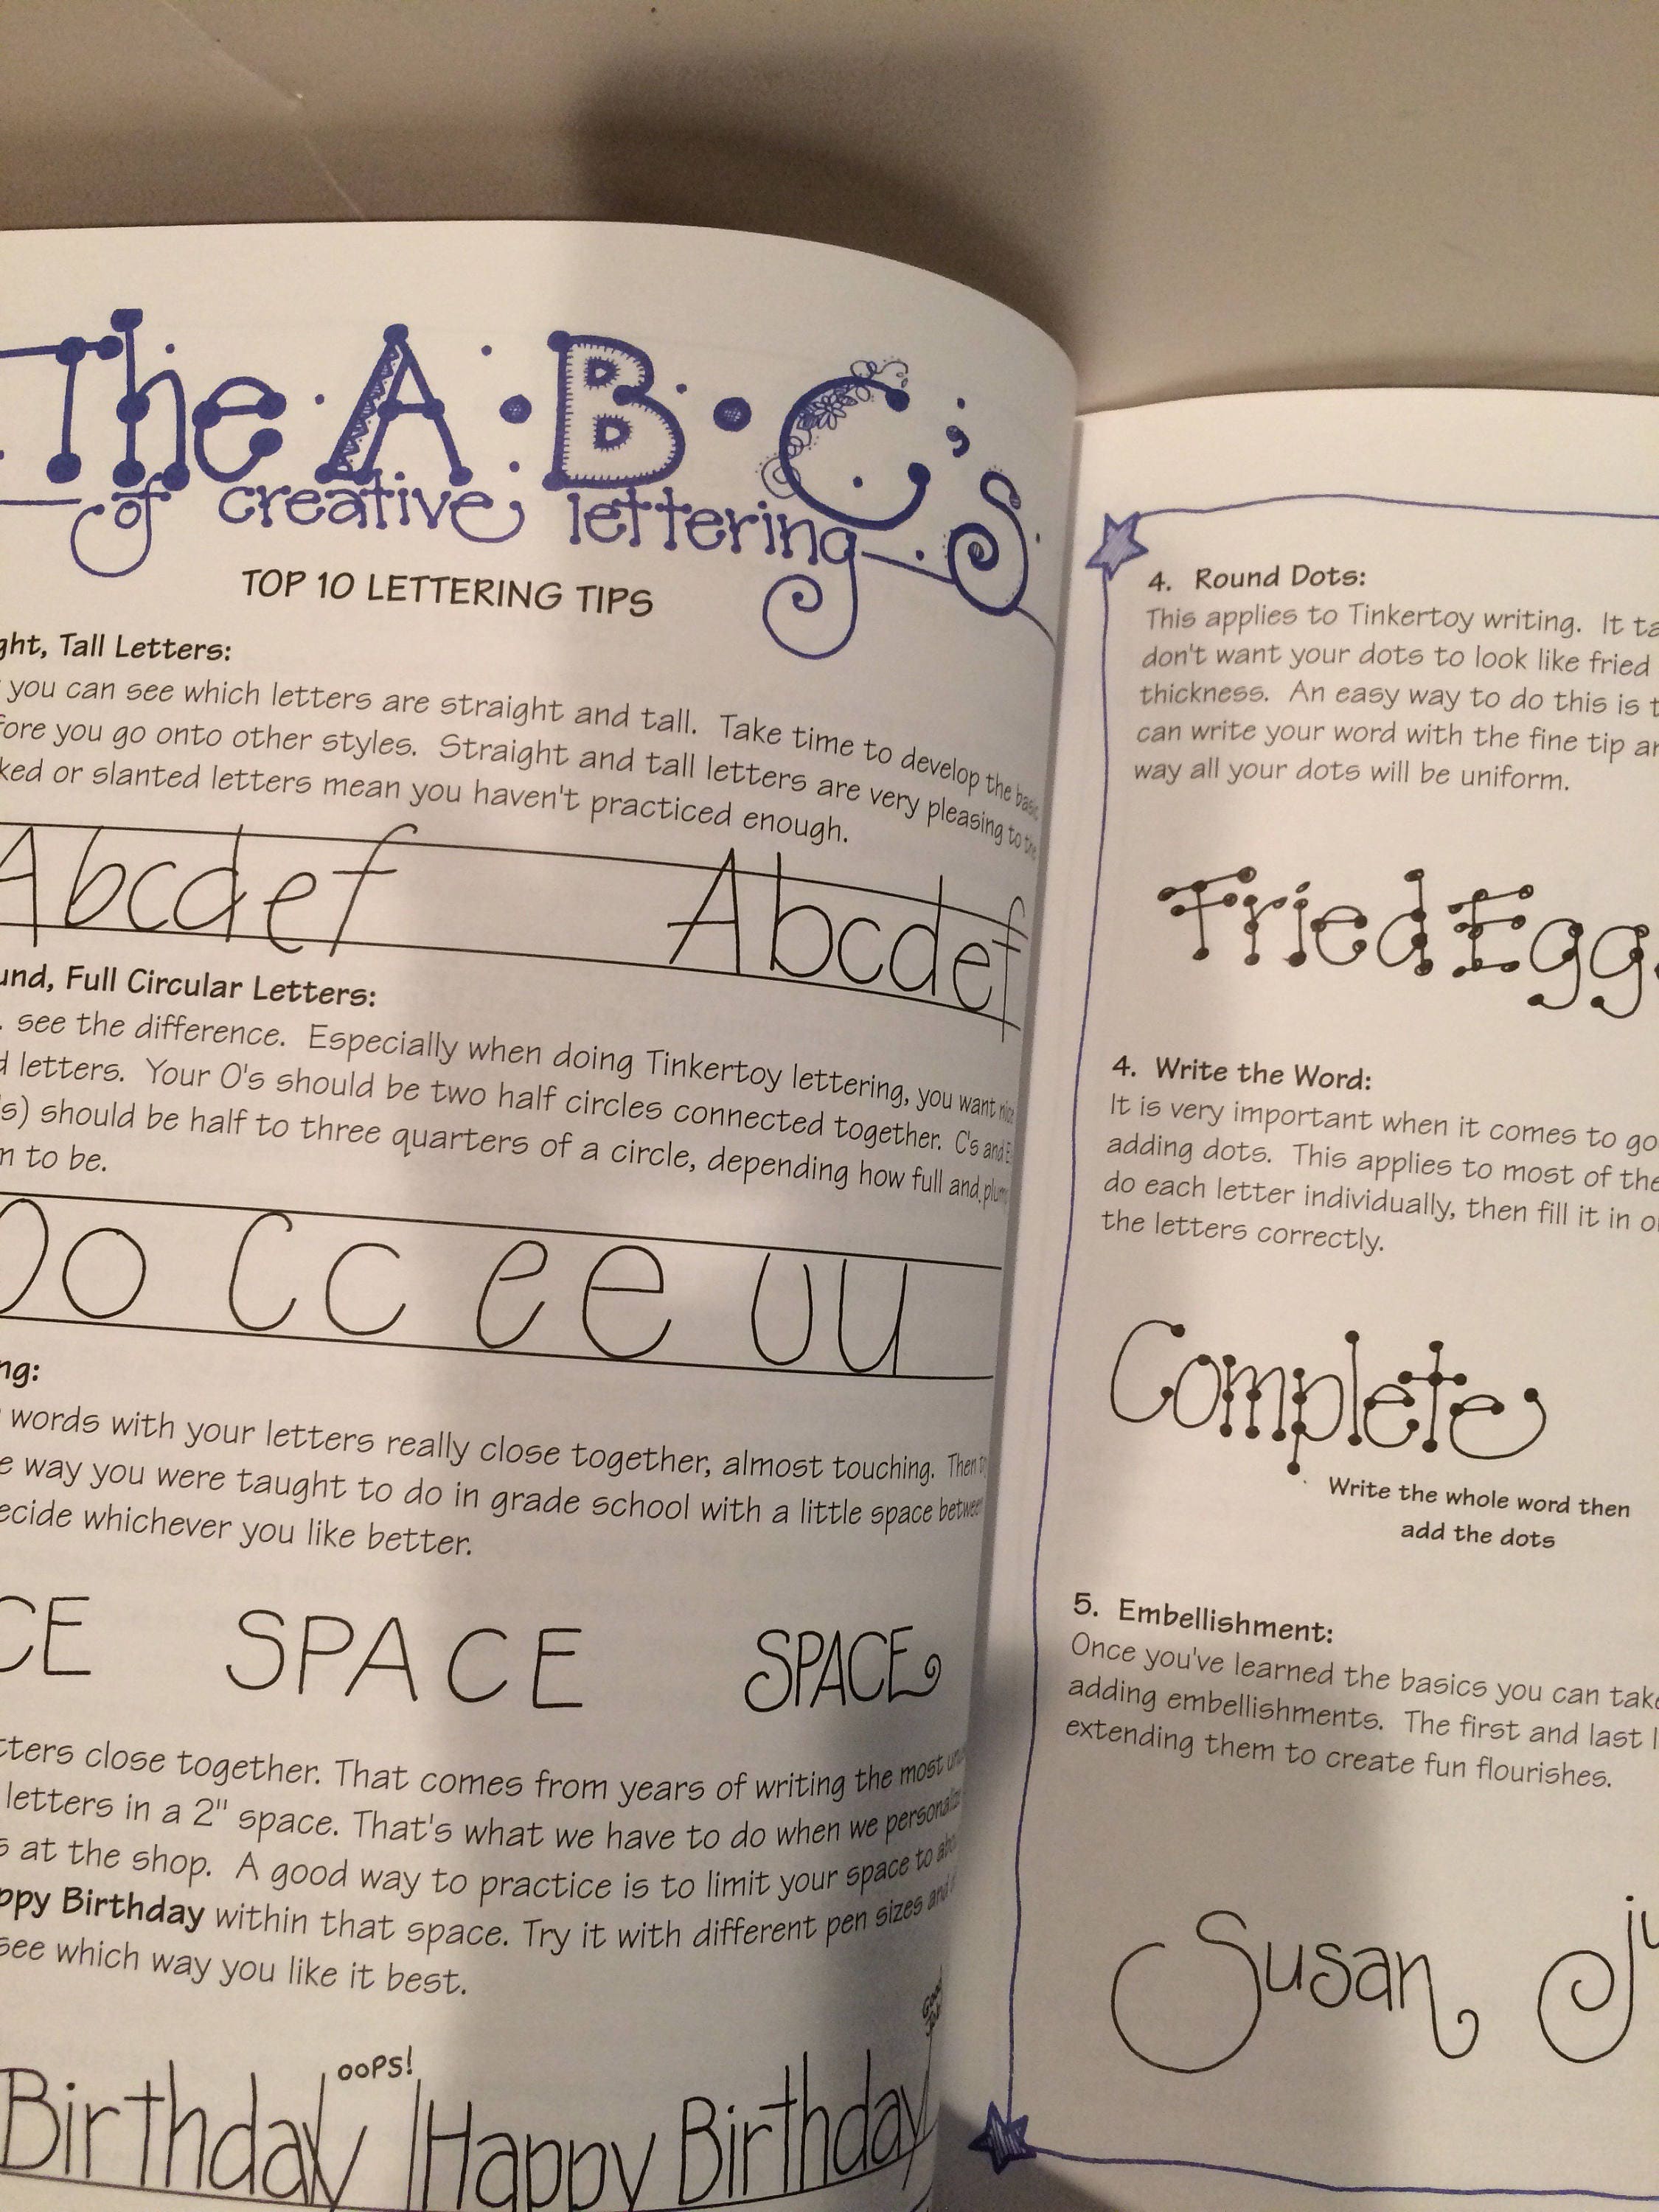 The A·B·C's
of creative lettering
TOP 10 LETTERING TIPS
Tall Letters:
you can see which letters are straight and tall. Take time to develop the
you go onto other styles. Straight and tall letters are very pleasing to the
or slanted letters mean you haven't practiced enough.
Abcdef Abcdef
Full Circular Letters:
see the difference. Especially when doing Tinkertoy lettering, you want
letters. Your O's should be two half circles connected together. C's and
should be half to three quarters of a circle, depending how full and
to be.
O o C c e e U u
words with your letters really close together, almost touching. Then
way you were taught to do in grade school with a little space between
whichever you like better.
CE SPACE SPACE
close together. That comes from years of writing the most
letters in a 2" space. That's what we have to do when we
at the shop. A good way to practice is to limit your space to
Birthday within that space. Try it with different pen sizes and
see which way you like it best.
oops!
Birthday Happy Birthday
4. Round Dots:
This applies to Tinkertoy writing. It
don't want your dots to look like fried
thickness. An easy way to do this is
can write your word with the fine tip
way all your dots will be uniform.
Fried Egg
4. Write the Word:
It is very important when it comes to
adding dots. This applies to most of the
do each letter individually, then fill it in
the letters correctly.
Complete
Write the whole word then
add the dots
5. Embellishment:
Once you've learned the basics you can take
adding embellishments. The first and last
extending them to create fun flourishes.
Susan